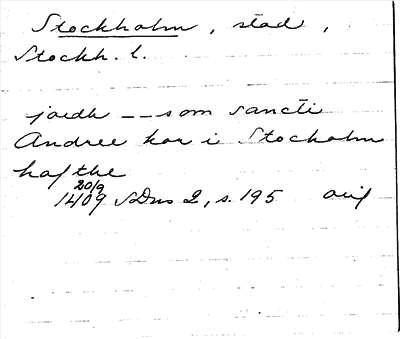 Stockholm, stad,
Stockh. l.
jordh -- som sancti
Andree kor i Stocholm
hafthe
20/9
1409 SDns 2, s. 195